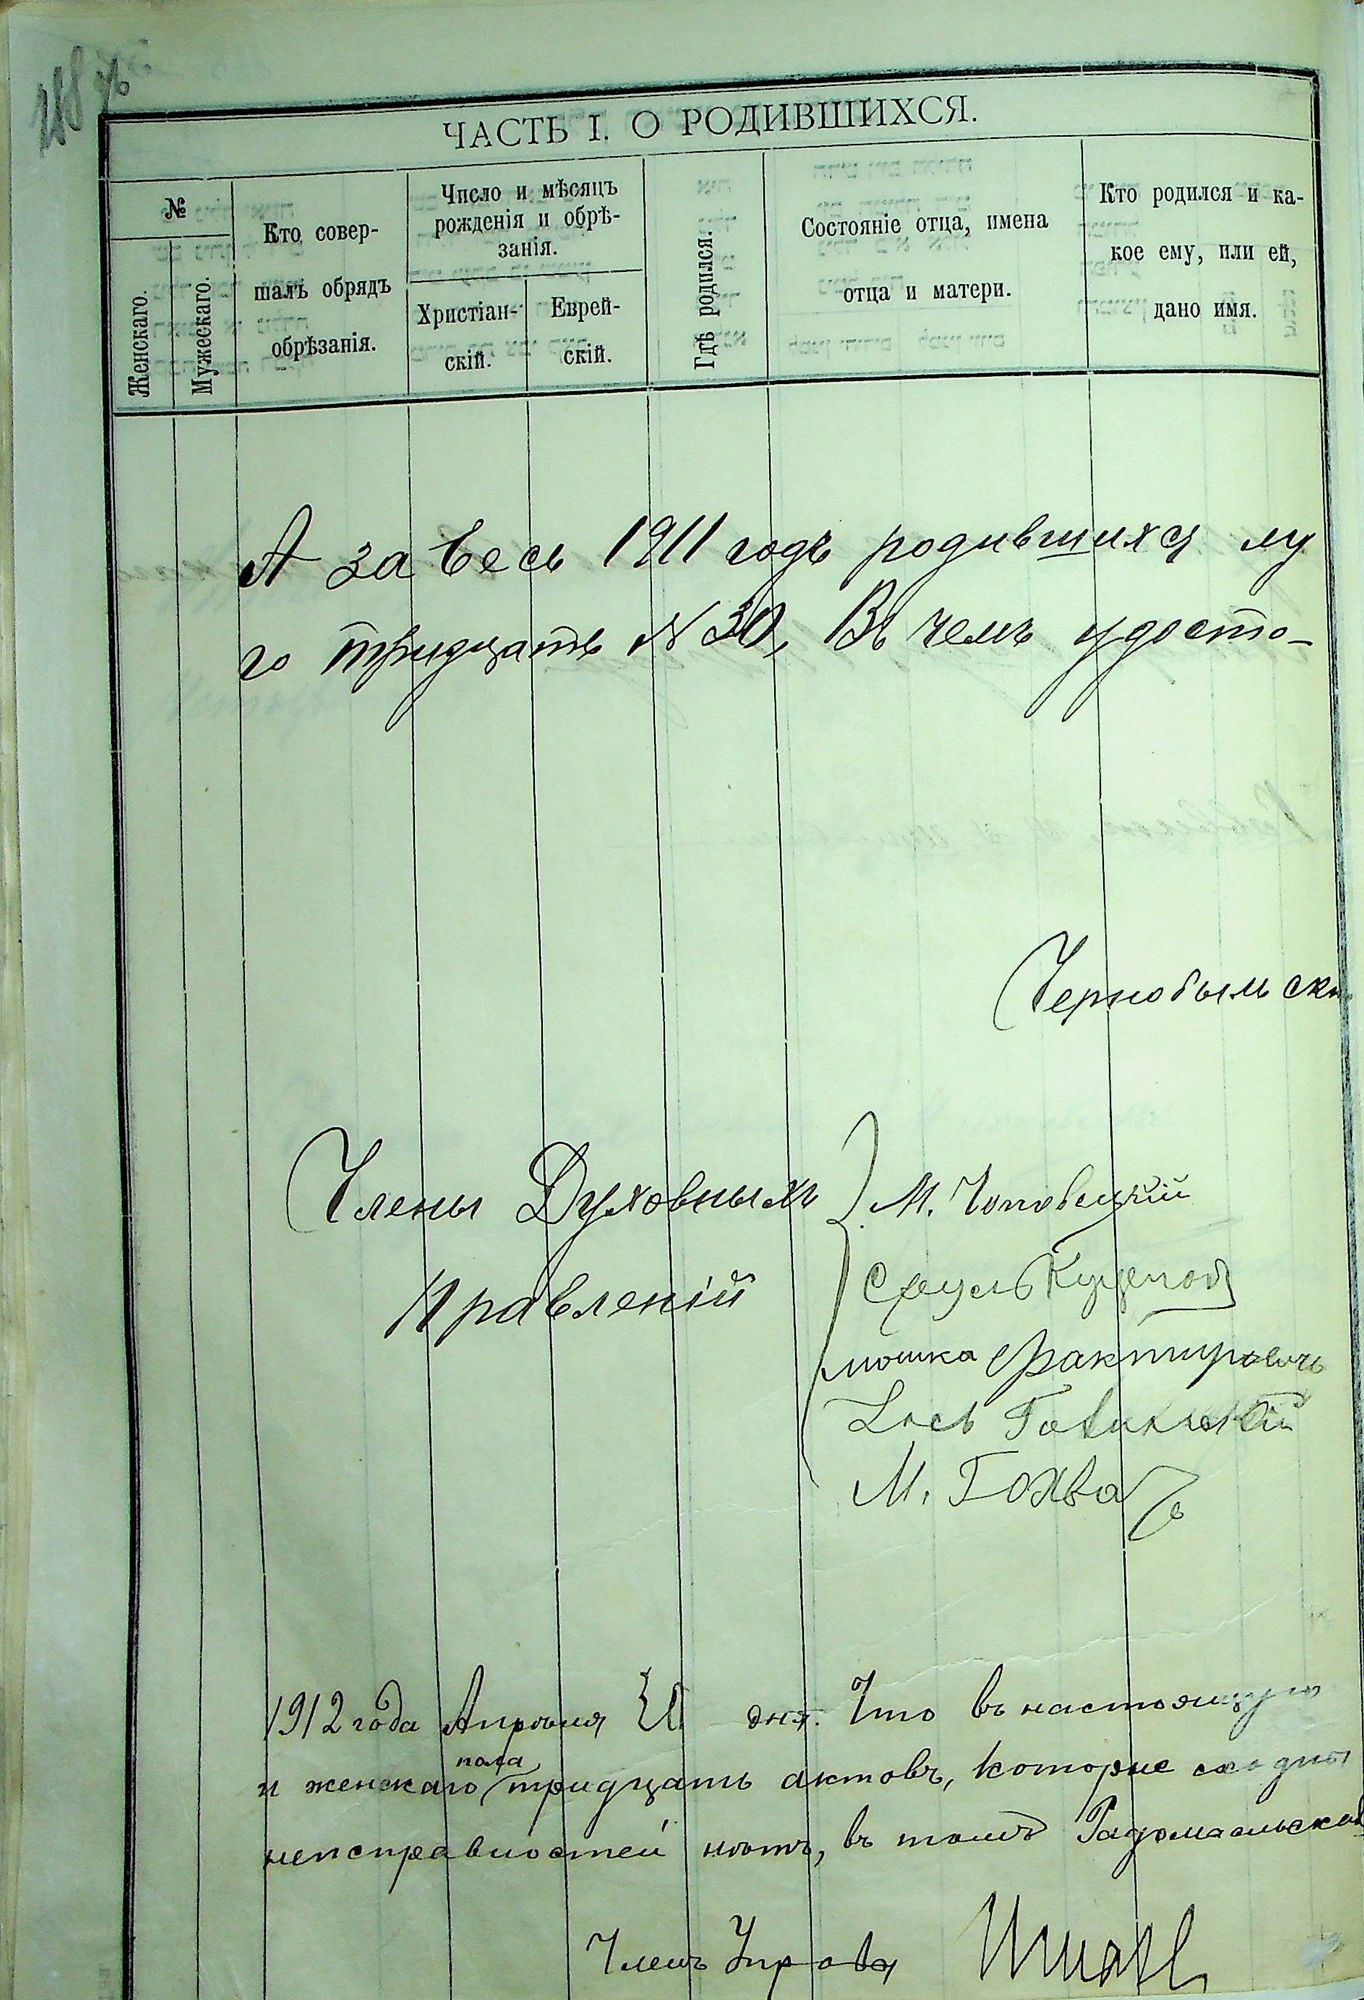 ЧАСТЬ I. О РОДИВШИХСЯ.
№
Женскаго.
Мужескаго.
Кто совер-
шалъ обрядъ
обрѣзанія.
Число и мѣсяцъ
рожденія и обрѣ-
занія.
Христіан-
скій.
Еврей-
скій.
Гдѣ родился.
Состояніе отца, имена
отца и матери.
Кто родился и ка-
кое ему, или ей,
дано имя.
А за весь 1911 годъ родившихся му
го тридцать N 30, Въ чемъ удосто-
Чернобыльск
Члены Духовныхъ
Правленій
М. Чоповецкій
Сруль
мошка Факторовичъ
М. Гохва
1912 года Апрѣля дня. Что въ настоящую
и женскаго пола тридцать актовъ, которые сходны
неисправностей нѣтъ, въ томъ Радомысльской
Членъ Управы